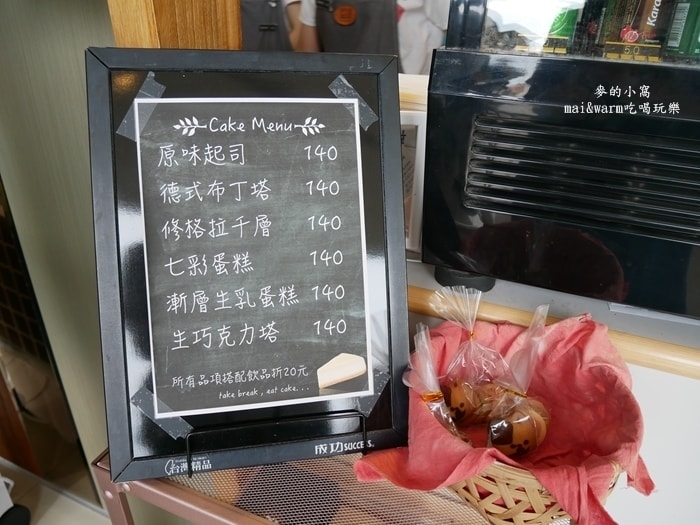 Cake Menu
原味起司 140
德式布丁塔 140
修格拉千層 140
七彩蛋糕 140
漸層生乳蛋糕 140
生巧克力塔 140
所有品項搭配飲品折20元
take break , eat cake. . .
台灣精品
成功 SUCCESS.
麥的小窩
mai&warm吃喝玩樂
5.0